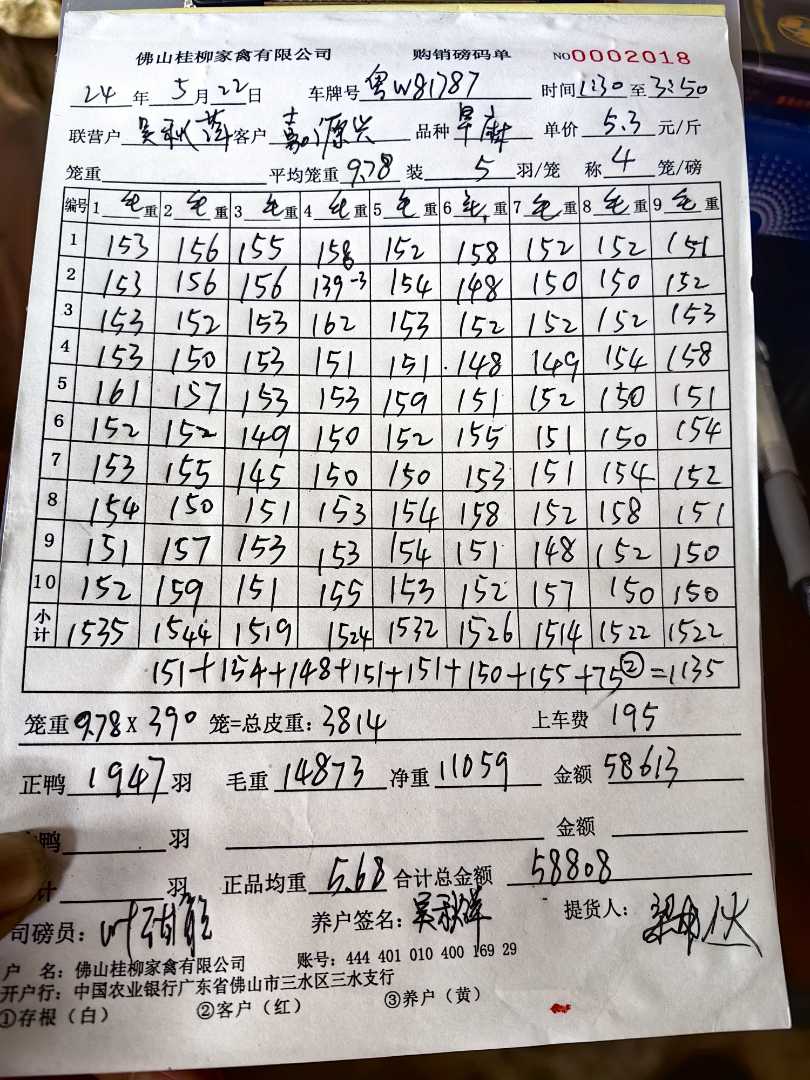 佛山桂柳家禽有限公司 购销磅码单 NO0002018
24年5月22日 车牌号粤W81787 时间1:30至3:50
联营户 客户嘉源兴 品种 单价5.3元/斤
笼重 平均笼重9.78 装5羽/笼 称4笼/磅
编号 1毛重 2毛重 3毛重 4毛重 5毛重 6毛重 7毛重 8毛重 9毛重
1 153 156 155 158 152 158 152 152 151
2 153 156 156 139-3 154 148 150 150 152
3 153 152 153 162 153 152 152 152 153
4 153 150 153 151 151 148 149 154 158
5 161 157 153 153 159 151 152 150 151
6 152 152 149 150 152 155 151 150 154
7 153 155 145 150 150 153 151 154 152
8 154 150 151 153 154 158 152 158 151
9 151 157 153 153 154 151 148 152 150
10 152 159 151 155 153 152 157 150 150
小计 1535 1544 1519 1524 1532 1526 1514 1522 1522
151+154+148+151+151+150+155+75②=1135
笼重9.78X390笼=总皮重:3814 上车费195
正鸭1947羽 毛重14873净重11059 金额58613
鸭 羽 金额
计 羽 正品均重5.68合计总金额58808
司磅员: 养户签名: 提货人:
户 名:佛山桂柳家禽有限公司 账号:444 401 010 400 169 29
开户行:中国农业银行广东省佛山市三水区三水支行
①存根(白) ②客户(红) ③养户(黄)